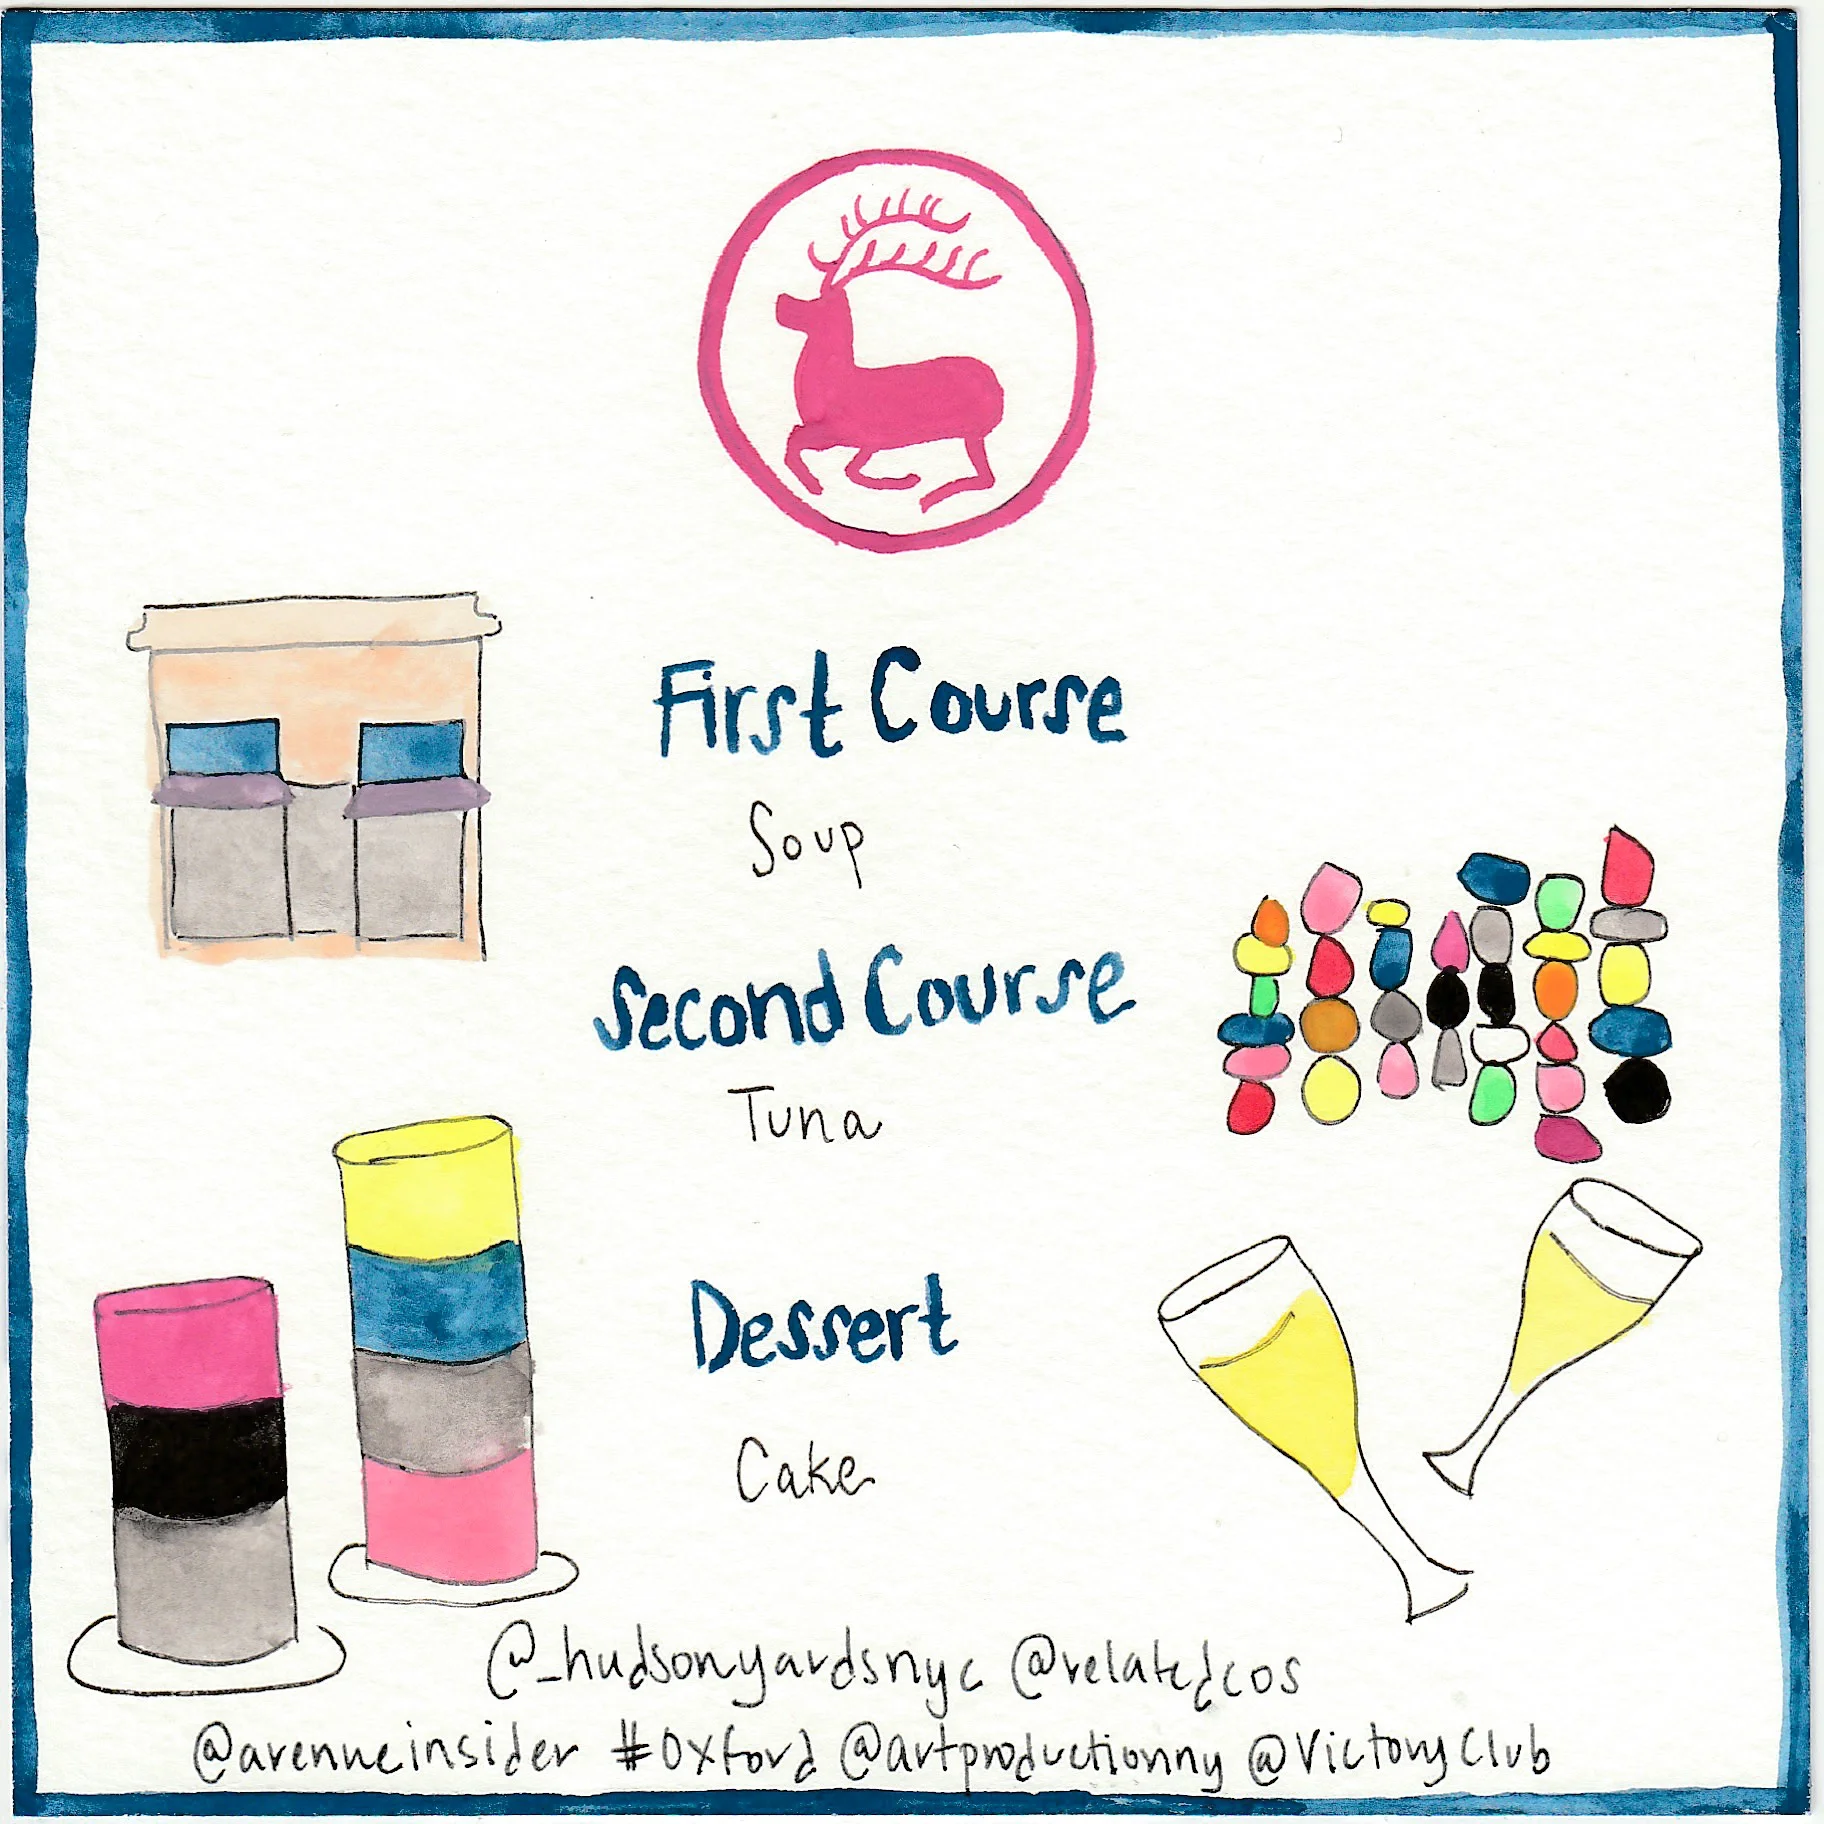 First Course
Soup
Second Course
Tuna
Dessert
Cake
@_hudsonyardsnyc @relatedcos
@avenueinsider #Oxford @artproductionny @VictoryClub